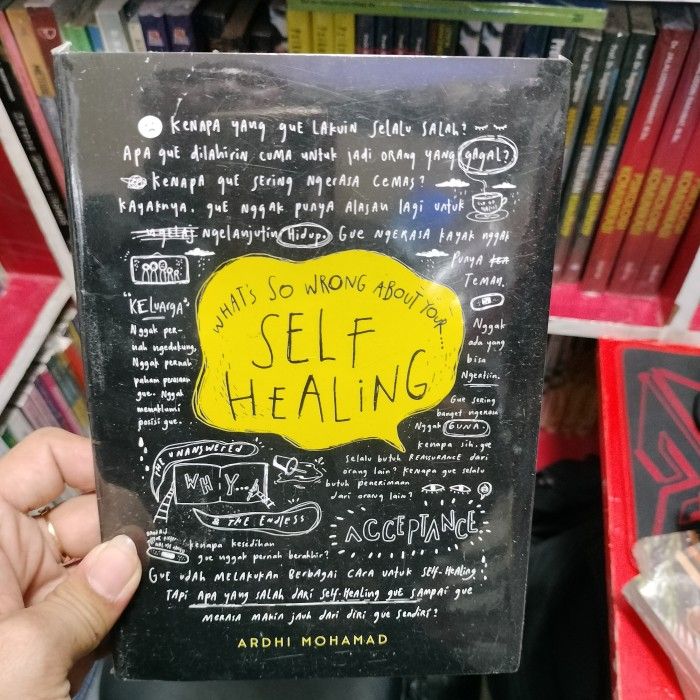 KENAPA YANG GUE LAKUIN SELALU SALAH?
APA GUE DILAHIRIN CUMA UNTUK JADI ORANG YANG GAGAL?
KENAPA GUE SERING NGERASA CEMAS?
KAYAKNYA, GUE NGGAK PUNYA ALASAN LAGI UNTUK
NGELANJUTIN HIDUP. GUE NGERASA KAYAK NGGAK
PUNYA
TEMAN.
"KELUARGA"
NGGAK PER-
NAH NGEDUKUNG,
NGGAK PERNAH
PAHAM PERASAAN
GUE. NGGAK
MEMAKLUMI
POSISI GUE.
WHAT'S SO WRONG ABOUT YOUR....
SELF
HEALING
NGGAK
ADA YANG
BISA
NGERTIIN.
GUE SERING
BANGET NGERASA
NGGAK GUNA.
KENAPA SIH, GUE
SELALU BUTUH REASSURANCE DARI
ORANG LAIN? KENAPA GUE SELALU
BUTUH PENERIMAAN
DARI ORANG LAIN?
THE UNANSWERED
WHY...
& THE ENDLESS
ACCEPTANCE
KENAPA KESEDIHAN
GUE NGGAK PERNAH BERAKHIR?
GUE UDAH MELAKUKAN BERBAGAI CARA UNTUK SELF-HEALING,
TAPI APA YANG SALAH DARI SELF-HEALING GUE SAMPAI GUE
MERASA MAKIN JAUH DARI DIRI GUE SENDIRI?
ARDHI MOHAMAD